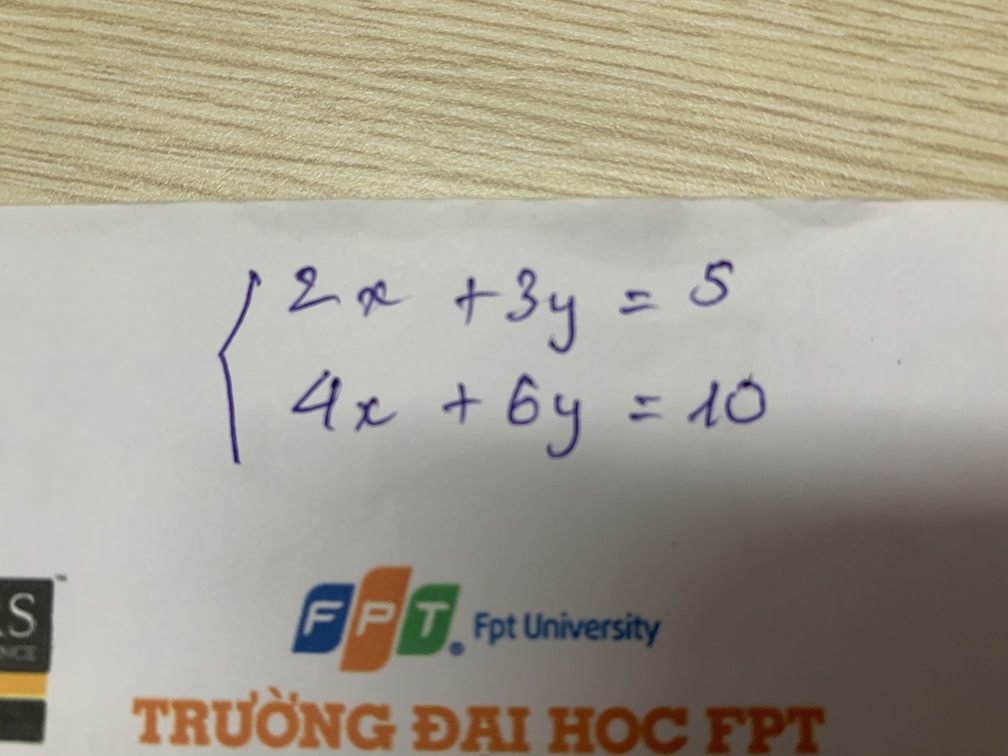 2x + 3y = 5
4x + 6y = 10
FPT. Fpt University
TRƯỜNG ĐẠI HỌC FPT